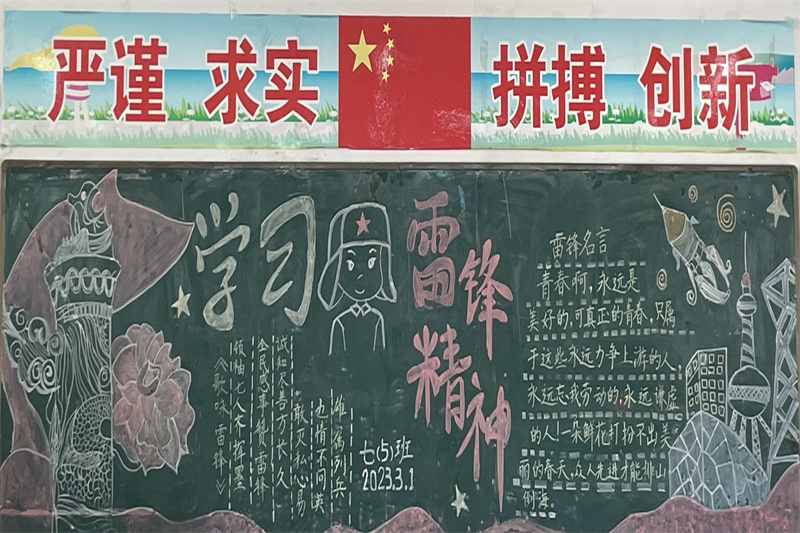 严谨 求实 拼搏 创新
学习
雷锋
精神
《歌咏雷锋》
领袖七人齐挥墨
全民感事赞雷锋
诚知尽善方长久
敢灭私心易
也情不同
为列兵
七(5)班
2023.3.1
雷锋名言
青春啊,永远是
美好的,可真正的青春,只属
于这些永远力争上游的人,
永远忘我劳动的,永远谦虚
的人!一朵鲜花打扮不出美
丽的春天,众人先进才能排山
倒海。